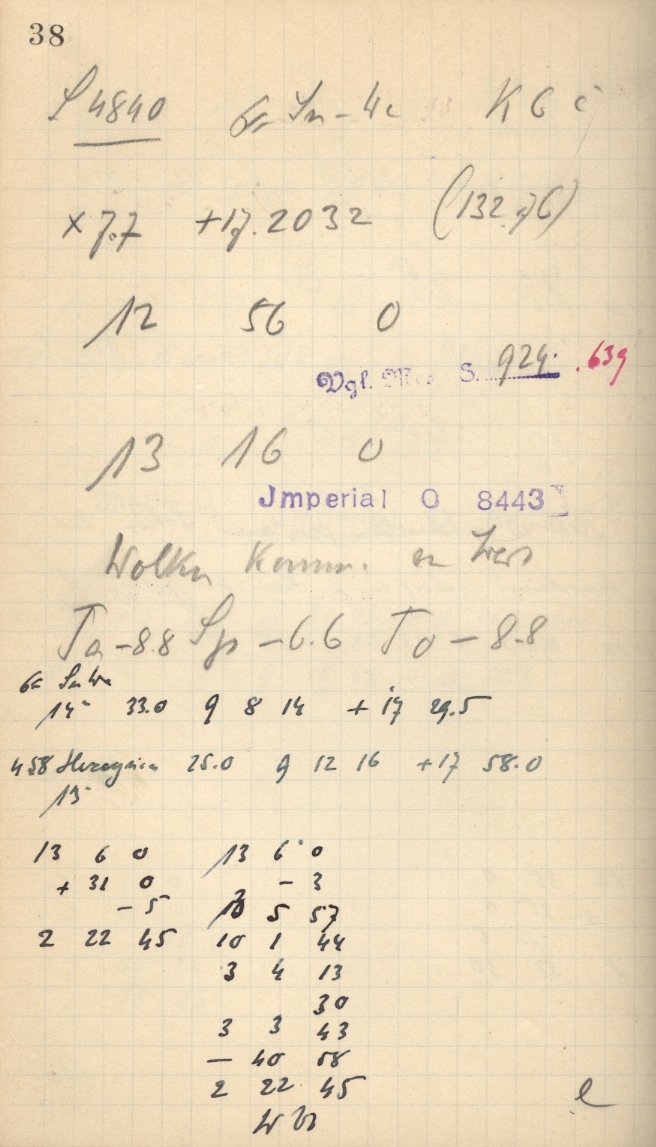 38
4840 K 6
× 7.7 +17.2032 (132.76)
12 56 0
Vgl. S. 924. .639
13 16 0
Jmperial O 8443
Wolken Komm.
Ta -8.8 Sp -6.6 To -8.8
14 33.0 9 8 14 +17 29.5
458 Hercynia 25.0 9 12 16 +17 58.0
13
13 6 0 13 6 0
+ 31 0 - 3
- 5 5 57
2 22 45 10 1 44
3 4 13
30
3 3 43
- 40 58
2 22 45